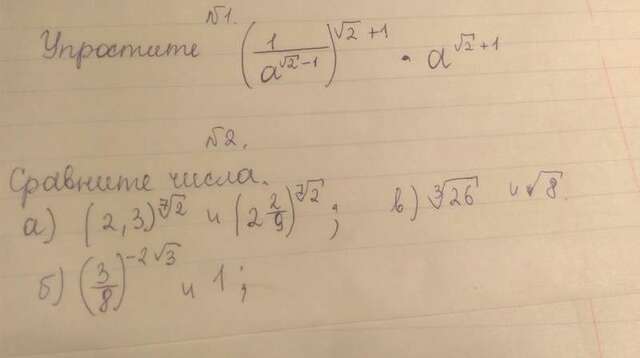 №1.
Упростите (1/a^(√2-1))^(√2+1) · a^(√2+1)
№2.
Сравните числа.
а) (2,3)^(⁷√2) и (2 2/9)^(⁷√2); в) ³√26 и √8.
б) (3/8)^(-2√3) и 1;